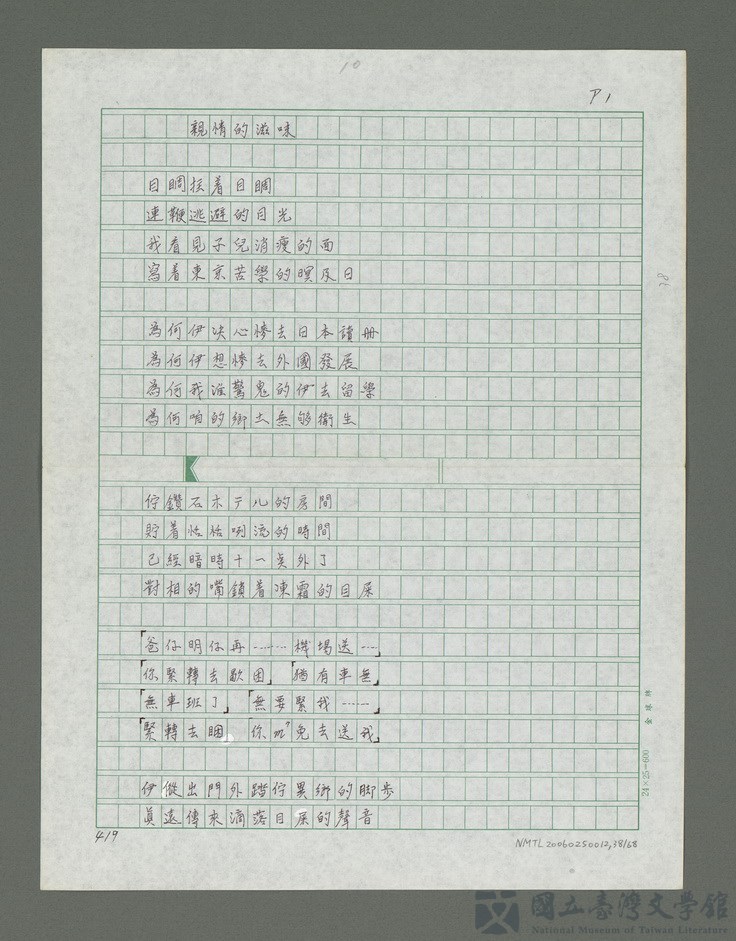 10
P1
親情的滋味
目睭接着目睭
連鞭逃避的目光
我看見子兒消瘦的面
寫着東京苦學的暝及日
38
為何伊決心慘去日本讀册
為何伊想慘去外國發展
為何我滋驚鬼的伊去留學
為何咱的鄉土無够衛生
佇鑽石ホテル的房間
貯着恬恬咧流的時間
已經暗時十一點外了
對相的嘴鎖着凍霜的目屎
「爸仔明仔再……機場送…」
「你緊轉去歇困」「猶有車無」
「無車班了」「無要緊我……」
「緊轉去睏 你m̄免去送我」
伊傱出門外踏佇異鄉的脚步
眞遠傳來滴落目屎的聲音
金球牌
24×25=600
419
NMTL20060250012,38/68
國立臺灣文學館
National Museum of Taiwan Literature